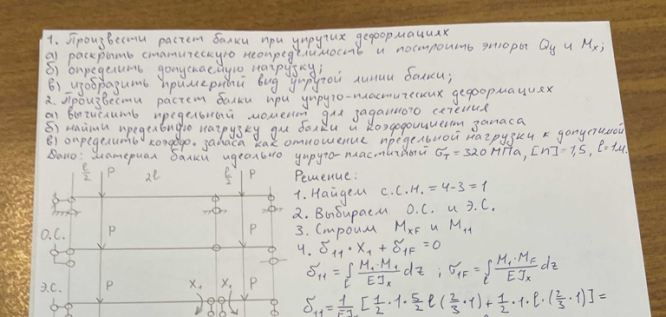 1. Произвести расчет балки при упругих деформациях
а) раскрыть статическую неопределимость и построить эпюры Qy и Mx;
б) определить допускаемую нагрузку;
в) изобразить примерный вид упругой линии балки;
2. Произвести расчет балки при упруго-пластических деформациях
а) вычислить предельный момент для заданного сечения
б) найти предельную нагрузку для балки и коэффициент запаса
в) определить коэфф. запаса как отношение предельной нагрузки к допустимой
Дано: материал балки идеально упруго-пластичный σт = 320 МПа, [n] = 1,5, l = 1м.
l/2 2l l/2
P P
О.С. P P
Э.С. P X₁ X₁ P
Решение:
1. Найдем С.С.Н. = 4-3 = 1
2. Выбираем О.С. и Э.С.
3. Строим MxF и M11
4. δ11 · X1 + δ1F = 0
δ11 = ∫l M1·M1/EJx dz ; δ1F = ∫l M1·MF/EJx dz
δ11 = 1/EJx [1/2 · 1 · 5/2 l (2/3 · 1) + 1/2 · 1 · l · (2/3 · 1)] =